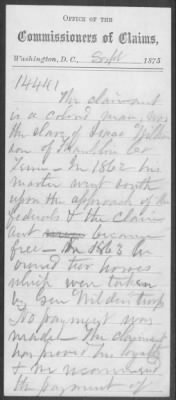 OFFICE OF THE
Commissioners of Claims,
Washington, D.C., Sept 1875
14441
The claimant
is a colored man, was
the slave of Isaac
son of Franklin Co
Tenn – In 1862 his
master went south
upon the approach of the
federals & the claim
ant became
free – In 1863 he
owned two horses
which were taken
by Gen Wilders troops
No payment was
made – The claimant
has proved his loyalty
& we recommend
the payment of